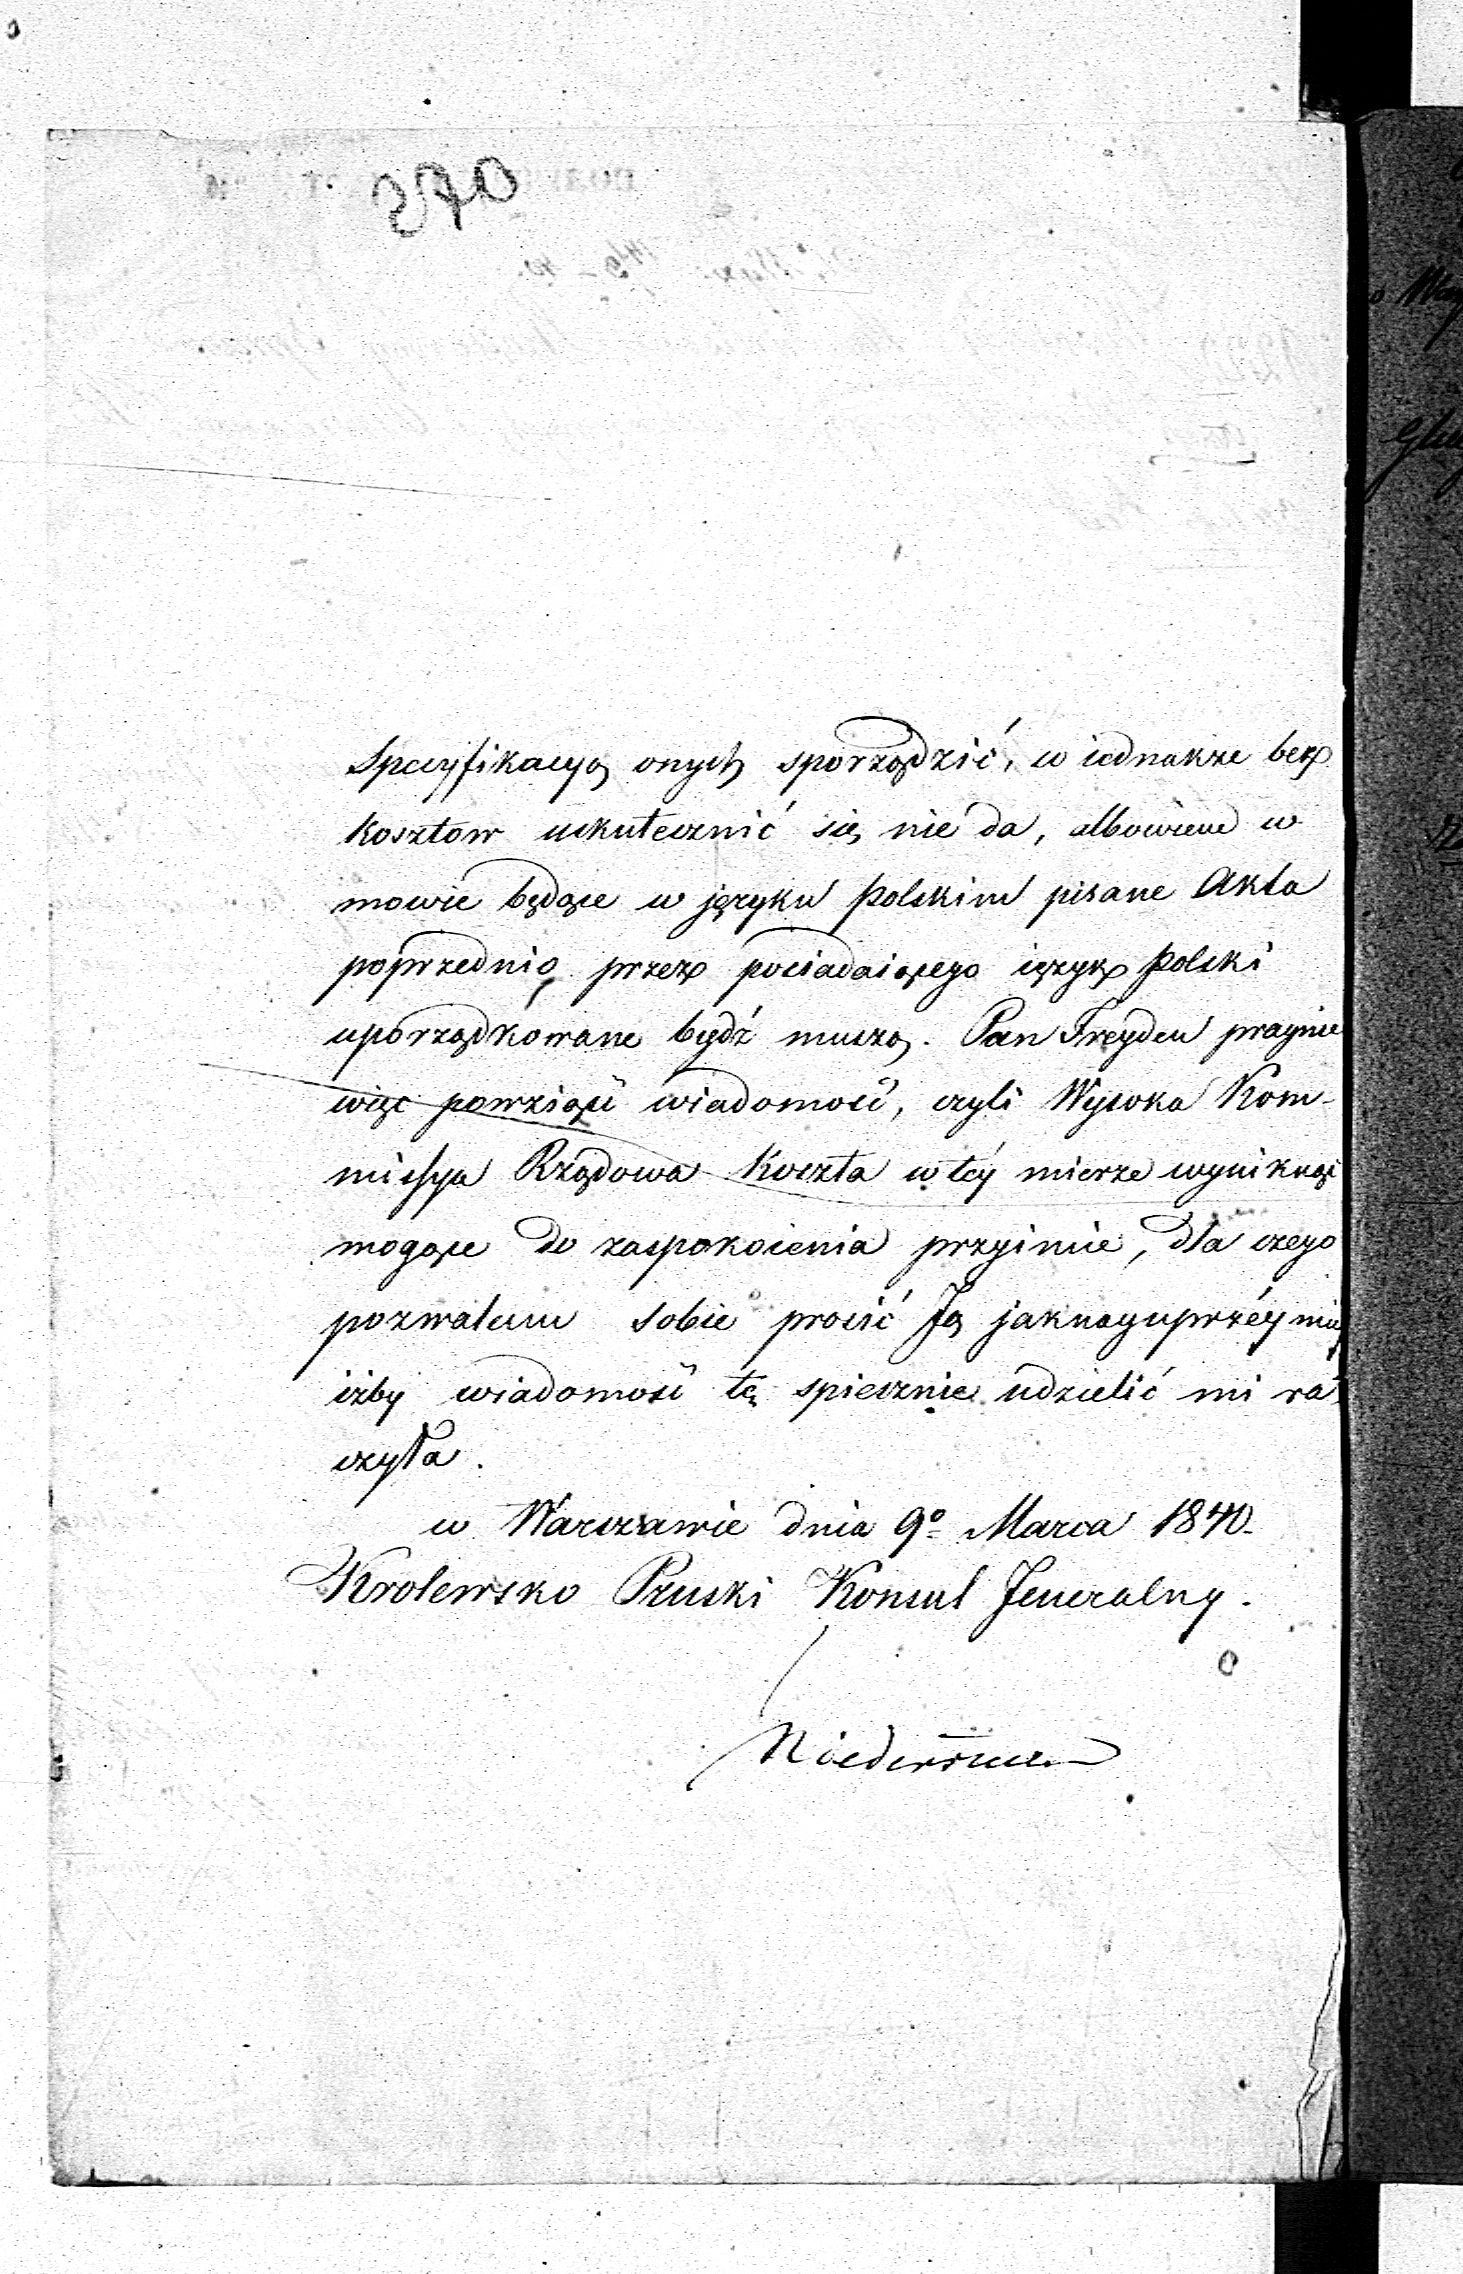 Specyfikacyą onych sporządzić, co iednakże bez
kosztow uskutecznić się nie da, albowiem w
mowie będące w języku polskim pisane Akta
poprzednio przez posiadaiącego ięzyk polski
uporządkowane bydź muszą. Pan Freyden pragnie
więc powziąść wiadomość, czyli Wysoka Kom-
missya Rządowa Koszta w téy mierze wyniknąć
mogące do zaspokoienia przyimie, dla czego
pozwalam sobie prosić Ją jaknayuprzéymiéy
iżby wiadomość tę spiesznie udzielić mi ra-
czyła.
w Warszawie dnia 9º Marca 1840.
Krolewsko Pruski Konsul Jeneralny.